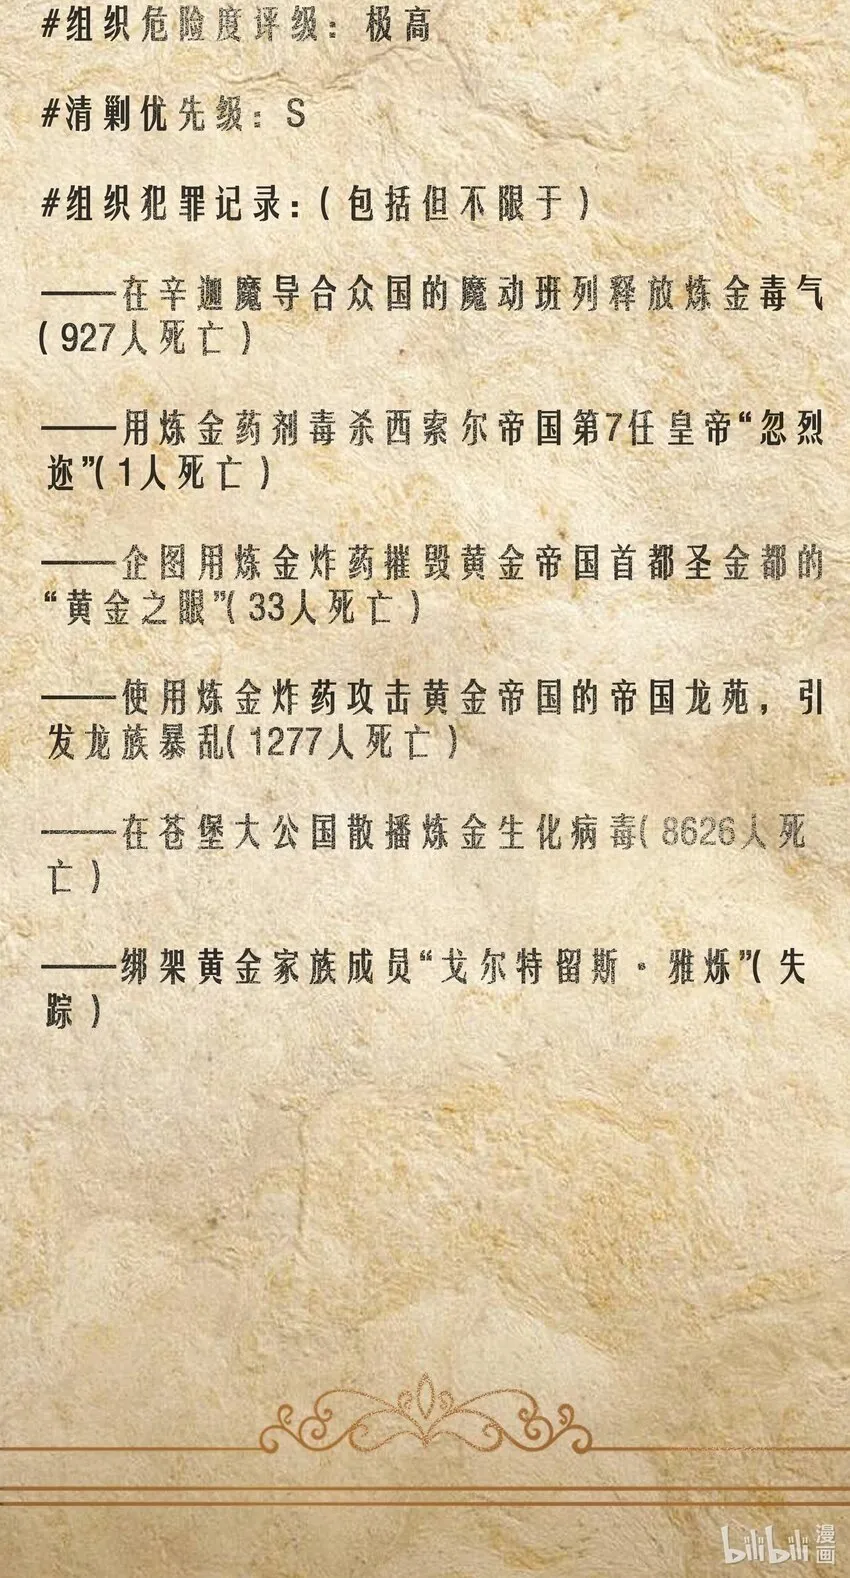 #组织危险度评级：极高
#清剿优先级：S
#组织犯罪记录：（包括但不限于）
——在辛迦魔导合众国的魔动班列释放炼金毒气
（927人死亡）
——用炼金药剂毒杀西索尔帝国第7任皇帝“忽烈
迩”（1人死亡）
——企图用炼金炸药摧毁黄金帝国首都圣金都的
“黄金之眼”（33人死亡）
——使用炼金炸药攻击黄金帝国的帝国龙苑，引
发龙族暴乱（1277人死亡）
——在苍堡大公国散播炼金生化病毒（8626人死
亡）
——绑架黄金家族成员“戈尔特留斯·雅烁”（失
踪）
bilibili 漫画